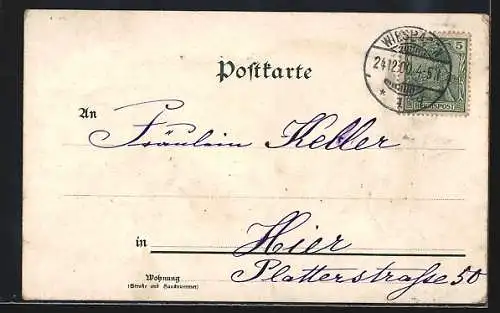 Postkarte
5
WIESBADEN
24.12.00. 4-5 N
1
REICHSPOST
An
Fräulein Keller
in Hier
Wohnung
(Straße und Hausnummer)
Platterstraße 50